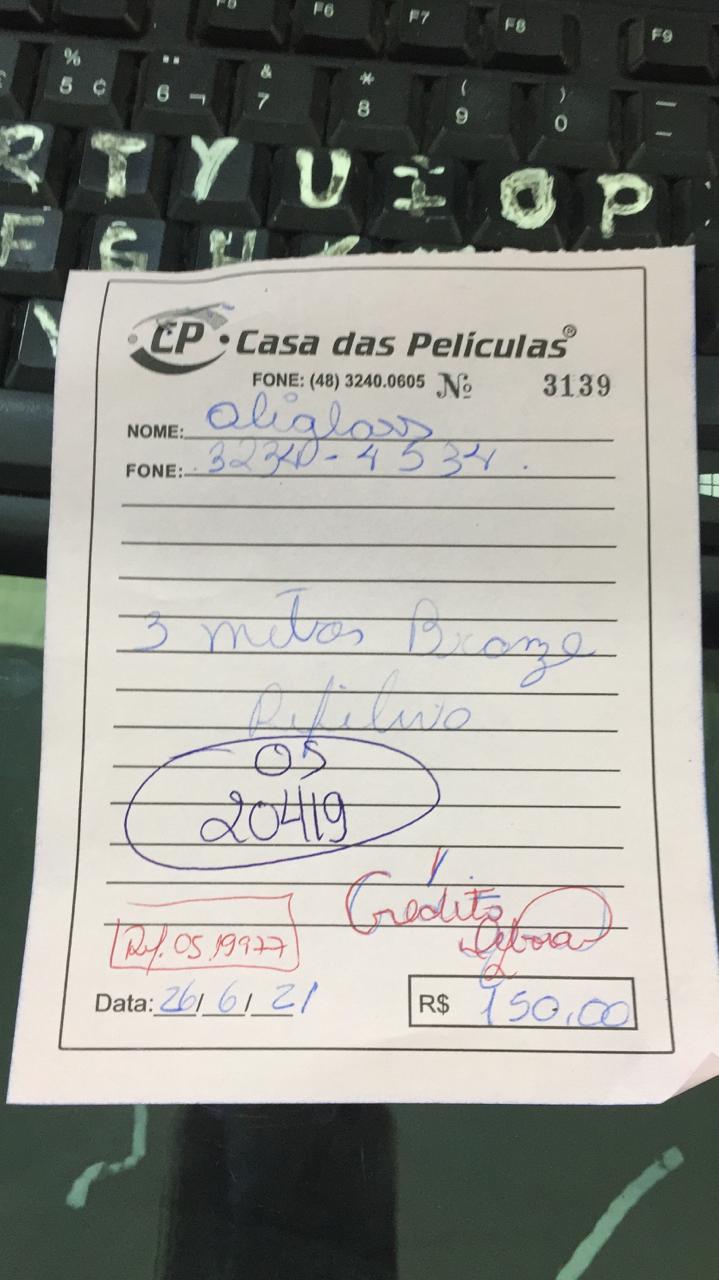 F5 F6 F7 F8 F9
% 5 ¢ 6 ¬ & 7 * 8 ( 9 ) 0
R T Y U I O P
F G H
CP Casa das Películas®
FONE: (48) 3240.0605 Nº 3139
NOME: aliglass
FONE: 3234-4534.
3 metros Bronze
Refletivo
OS
20419
Crédito
Ref. OS 19977 Débora
Data: 26/6/21 R$ 150,00